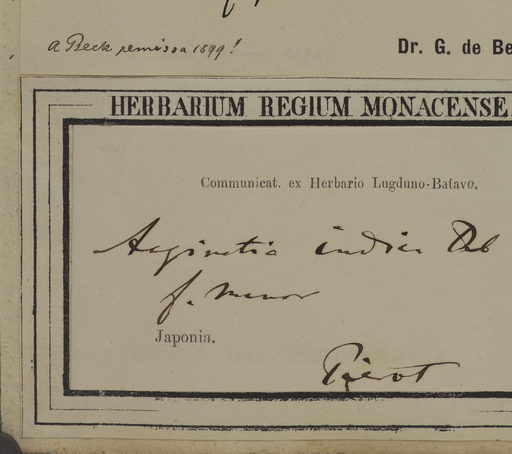 a Beck remissa 1899!
Dr. G. de Be
HERBARIUM REGIUM MONACENSE.
Communicat. ex Herbario Lugduno-Batavo.
Aeginetia indica
f. minor
Japonia.
Pierot